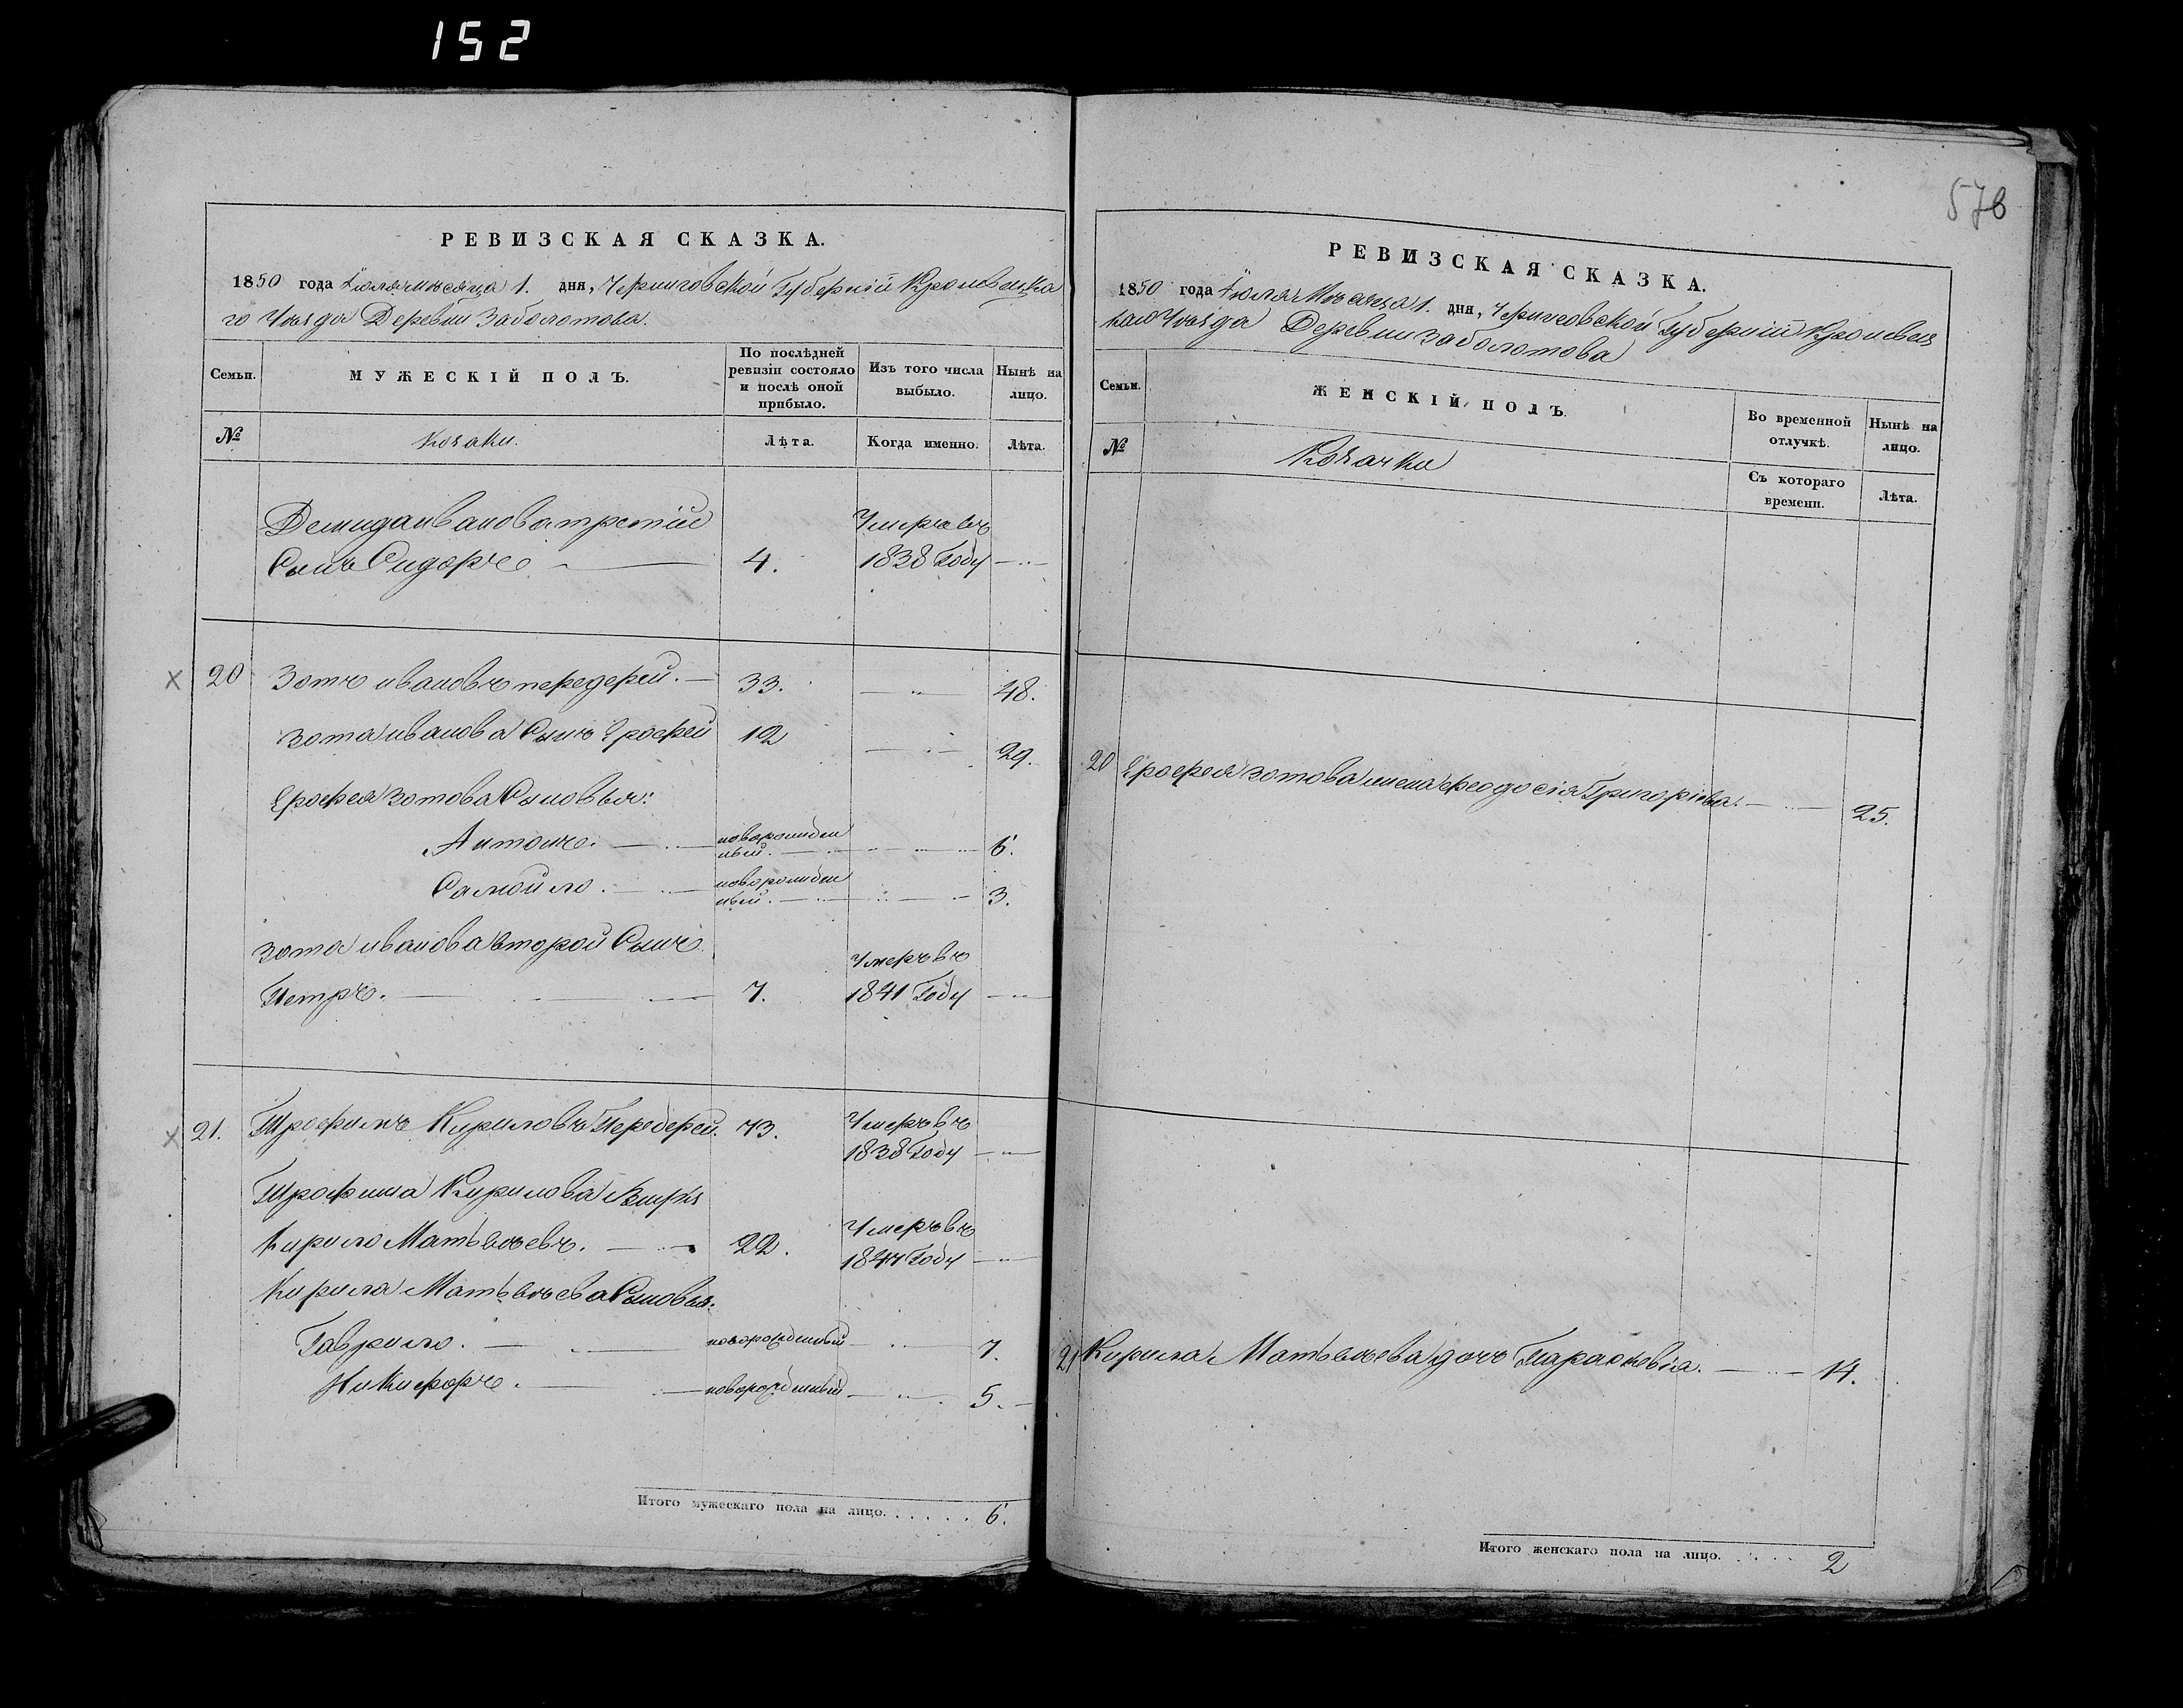 152
576
РЕВИЗСКАЯ СКАЗКА.
1850 года Іюля месяца 1. дня, Черниговской Губерніи Кролевецка
го Уезда Деревни Заболотова.
Семьи.
МУЖЕСКІЙ ПОЛЪ.
По послѣдней ревизіи состояло и послѣ оной прибыло.
Изъ того числа выбыло.
Нынѣ на лицо.
№
Козаки.
Лѣта.
Когда именно.
Лѣта.
Демида иванова третій
Умеръ въ
Сынъ Сидоръ
4.
1838 Году
20
Зотъ ивановъ передерей.
33.
48.
Зота иванова Сынъ Ерофей
12
29.
Ерофея Зотова Сыновья:
Антонъ.
новорожден
ный.
6.
Самойло.
новорожден
ный.
3.
Зота иванова второй Сынъ
Умеръ въ
Петръ.
7.
1841 Году
21.
Трофимъ Кириловъ Передерей.
73.
Умеръ въ
1838 Году
Трофима Кирилова
Кирило Матвѣевъ.
22.
Умеръ въ
Году
Кирила Матвѣева Сыновья:
Гаврило.
новорожденный
7.
Никифоръ.
новорожденный
5.
Итого мужескаго пола на лицо. . . . . .
6.
РЕВИЗСКАЯ СКАЗКА.
1850 года Іюля Месяца 1. дня, Черниговской Губерніи Кролевец
каго Уезда Деревни Заболотова
Семьи.
ЖЕНСКІЙ ПОЛЪ.
Во временной отлучкѣ.
Нынѣ на лицо.
№
Козачки
Съ котораго времени.
Лѣта.
20
Ерофея Зотова жена феодосія Григоріева.
25.
21
Кирила Матвѣева дочь Параскевія.
14.
Итого женскаго пола на лицо. . . . . .
2